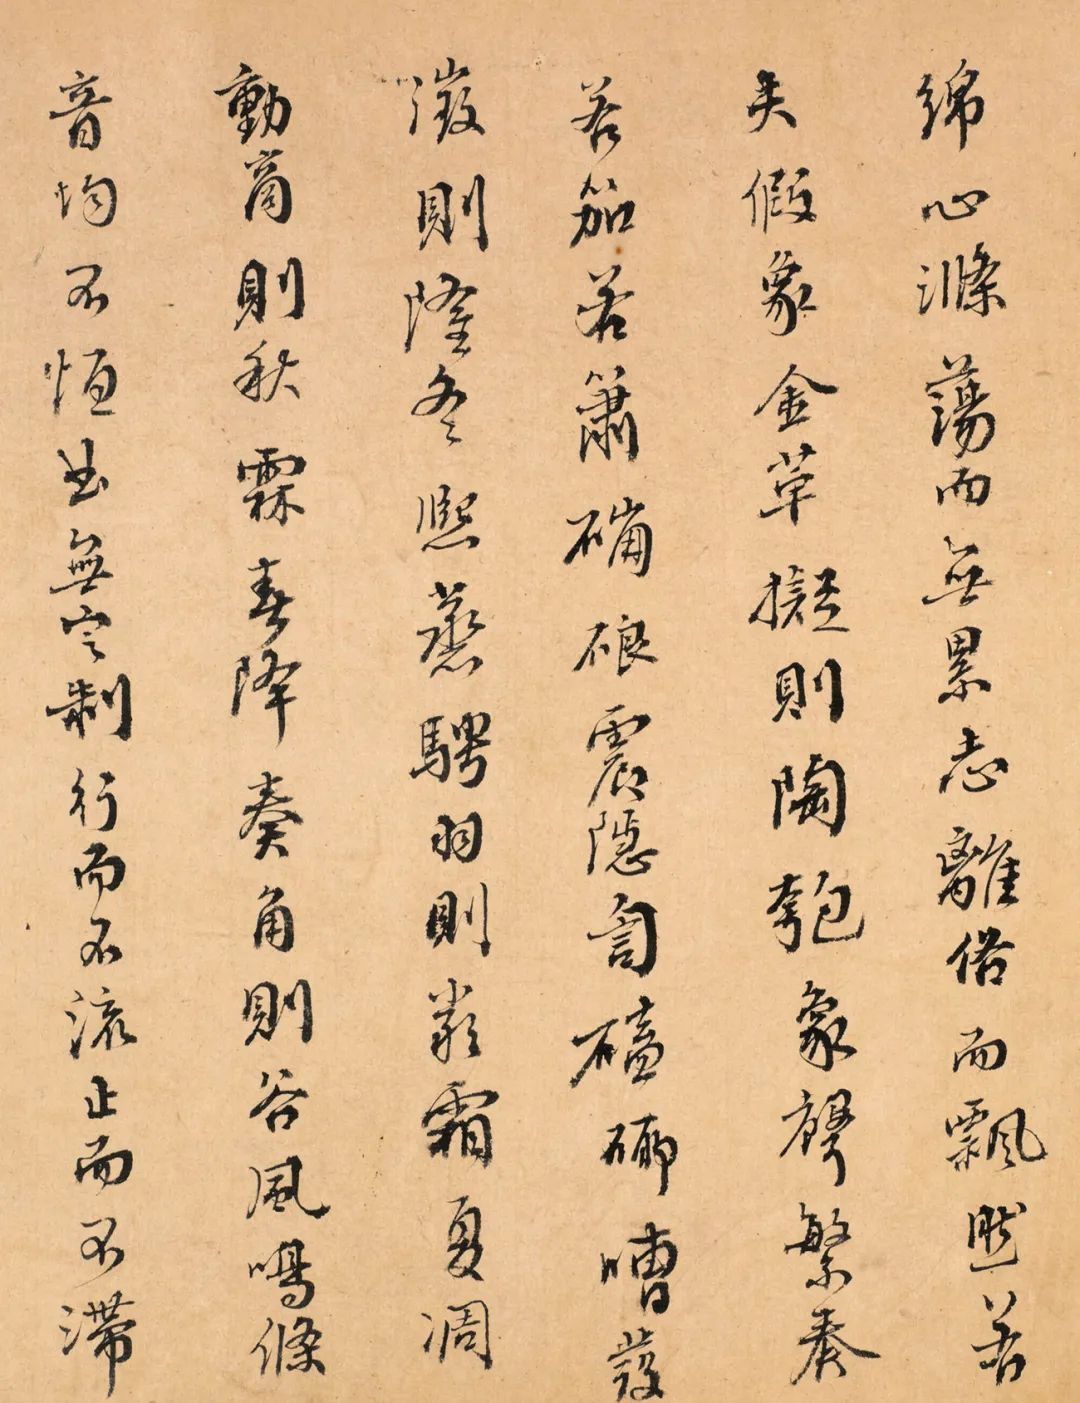 綿心滌蕩而無累志離俗而飄然若
夫假象金革擬則陶匏象聲繁奏
若笳若簫硼硠震隱訇磕嘈發
徵則隆冬熙蒸騁羽則嚴霜夏凋
動商則秋霖春降奏角則谷風鳴條
音均不恒曲無定制行而不流止而不滯